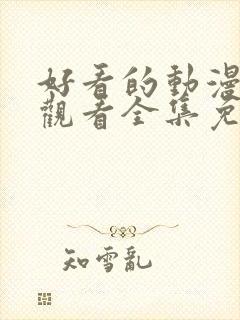 好看的動漫
觀看全集免
知雪亂